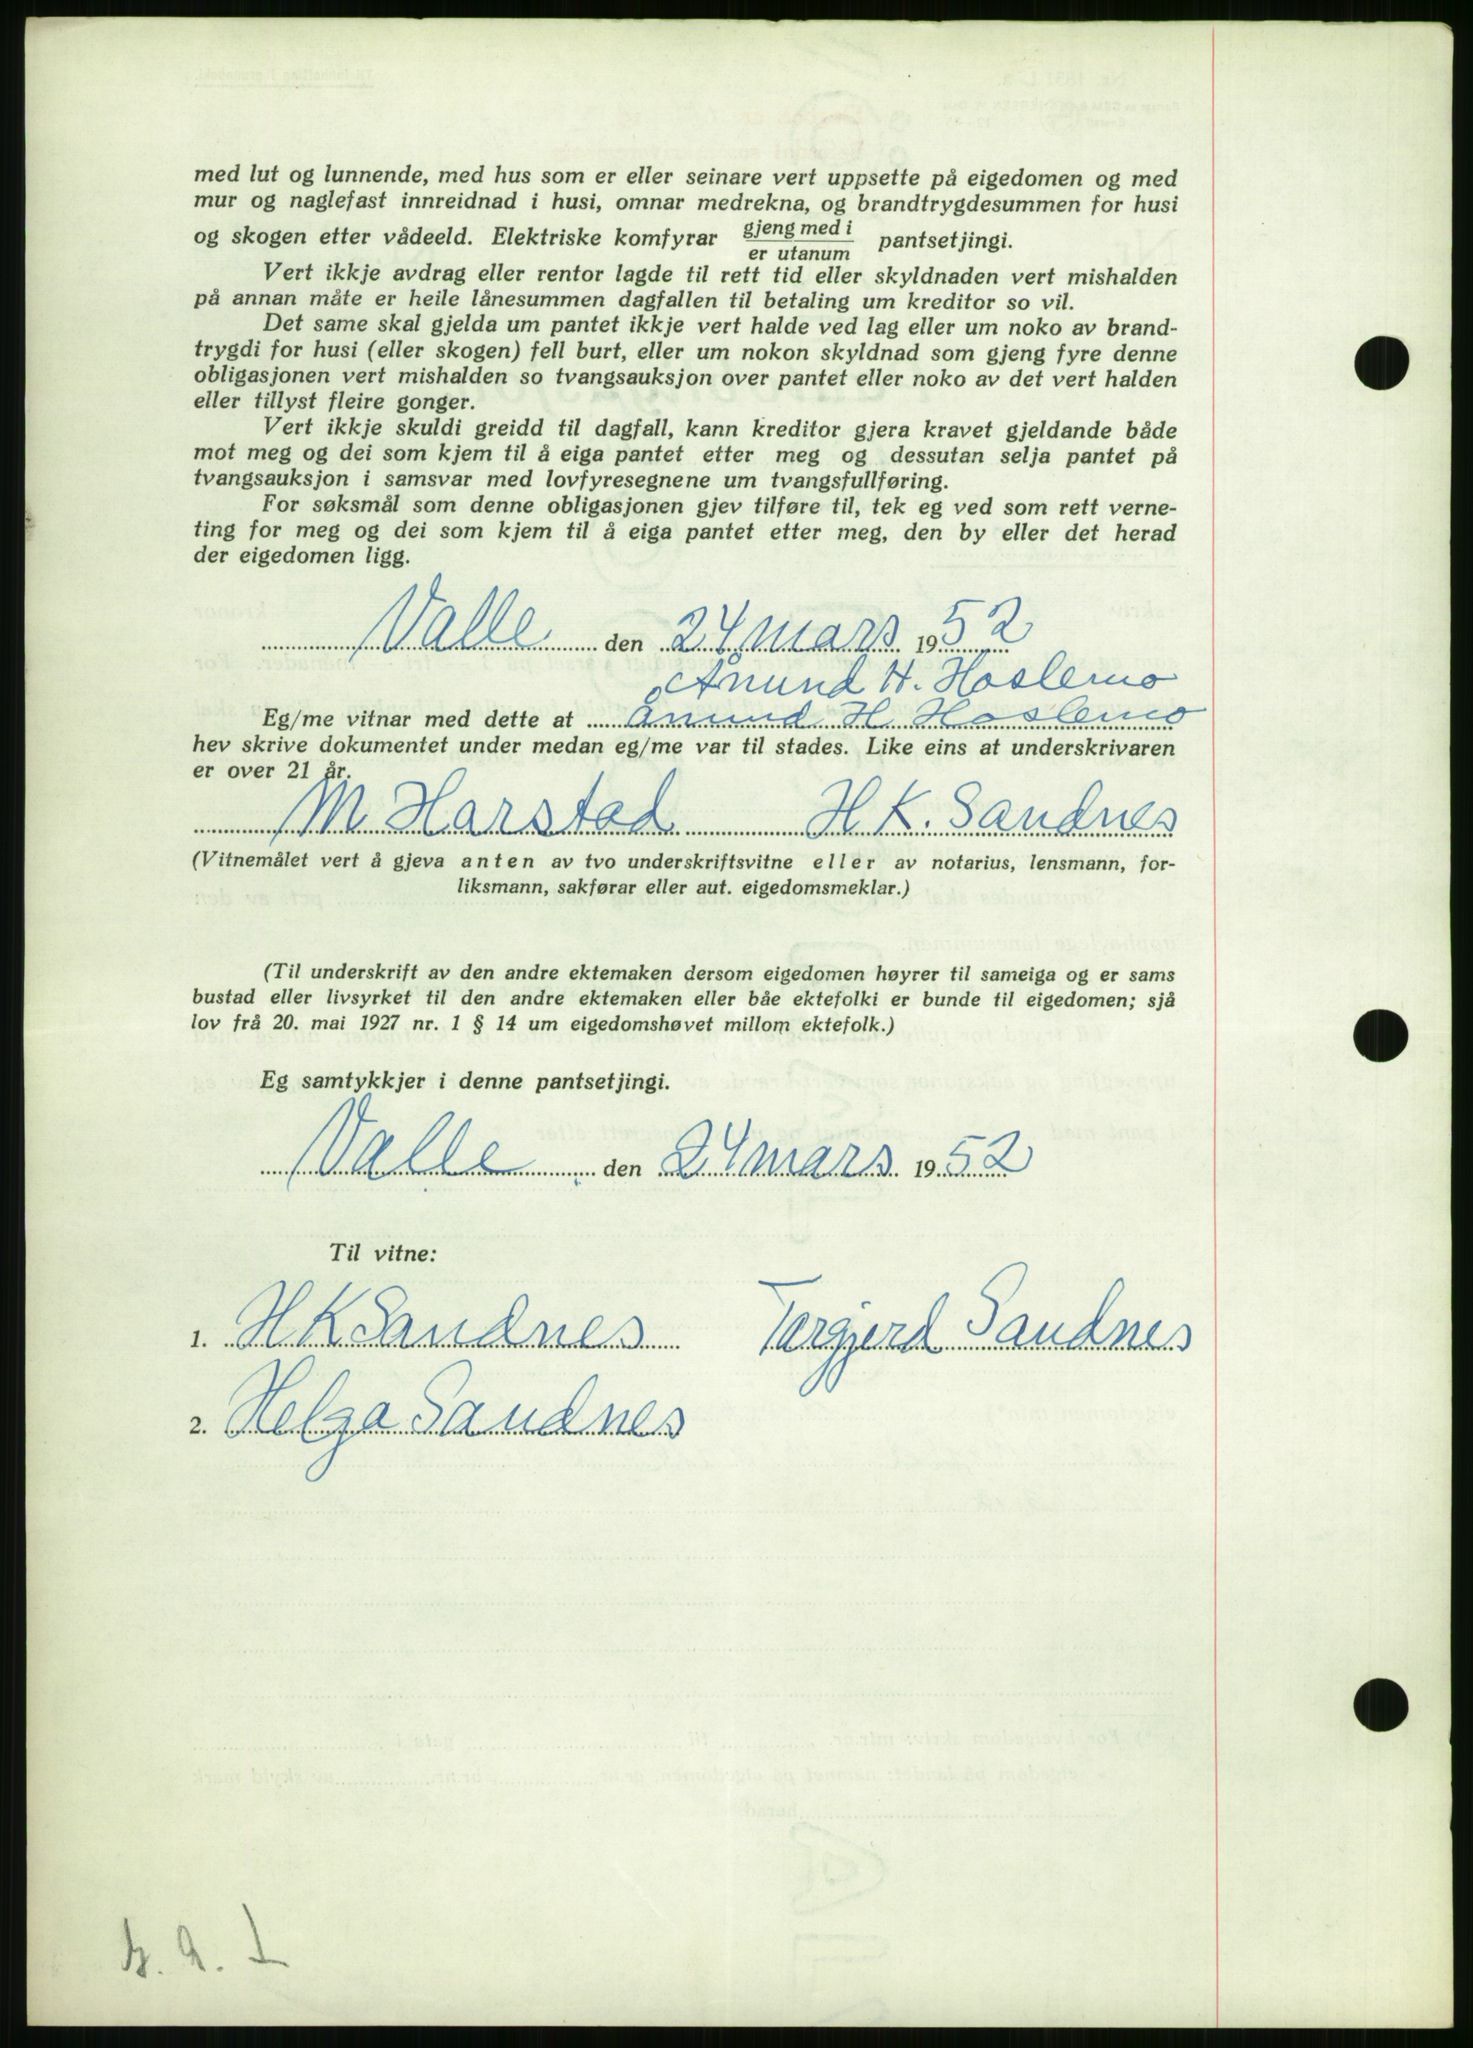 med lut og lunnende, med hus som er eller seinare vert uppsette på eigedomen og med
mur og naglefast innreidnad i husi, omnar medrekna, og brandtrygdesummen for husi
og skogen etter vådeeld. Elektriske komfyrar gjeng med i / er utanum pantsetjingi.
Vert ikkje avdrag eller rentor lagde til rett tid eller skyldnaden vert mishalden
på annan måte er heile lånesummen dagfallen til betaling um kreditor so vil.
Det same skal gjelda um pantet ikkje vert halde ved lag eller um noko av brand-
trygdi for husi (eller skogen) fell burt, eller um nokon skyldnad som gjeng fyre denne
obligasjonen vert mishalden so tvangsauksjon over pantet eller noko av det vert halden
eller tillyst fleire gonger.
Vert ikkje skuldi greidd til dagfall, kann kreditor gjera kravet gjeldande både
mot meg og dei som kjem til å eiga pantet etter meg og dessutan selja pantet på
tvangsauksjon i samsvar med lovfyresegnene um tvangsfullføring.
For søksmål som denne obligasjonen gjev tilføre til, tek eg ved som rett verne-
ting for meg og dei som kjem til å eiga pantet etter meg, den by eller det herad
der eigedomen ligg.
Valle den 24 mars 1952
Ånund H. Hoslemo
Eg/me vitnar med dette at Ånund H Hoslemo
hev skrive dokumentet under medan eg/me var til stades. Like eins at underskrivaren
er over 21 år.
M Harstad H K. Sandnes
(Vitnemålet vert å gjeva anten av tvo underskriftsvitne eller av notarius, lensmann, for-
liksmann, sakførar eller aut. eigedomsmeklar.)
(Til underskrift av den andre ektemaken dersom eigedomen høyrer til sameiga og er sams
bustad eller livsyrket til den andre ektemaken eller båe ektefolki er bunde til eigedomen; sjå
lov frå 20. mai 1927 nr. 1 § 14 um eigedomshøvet millom ektefolk.)
Eg samtykkjer i denne pantsetjingi.
Valle den 24 mars 1952
Til vitne:
1. H K Sandnes Torgjerd Sandnes
2. Helga Sandnes